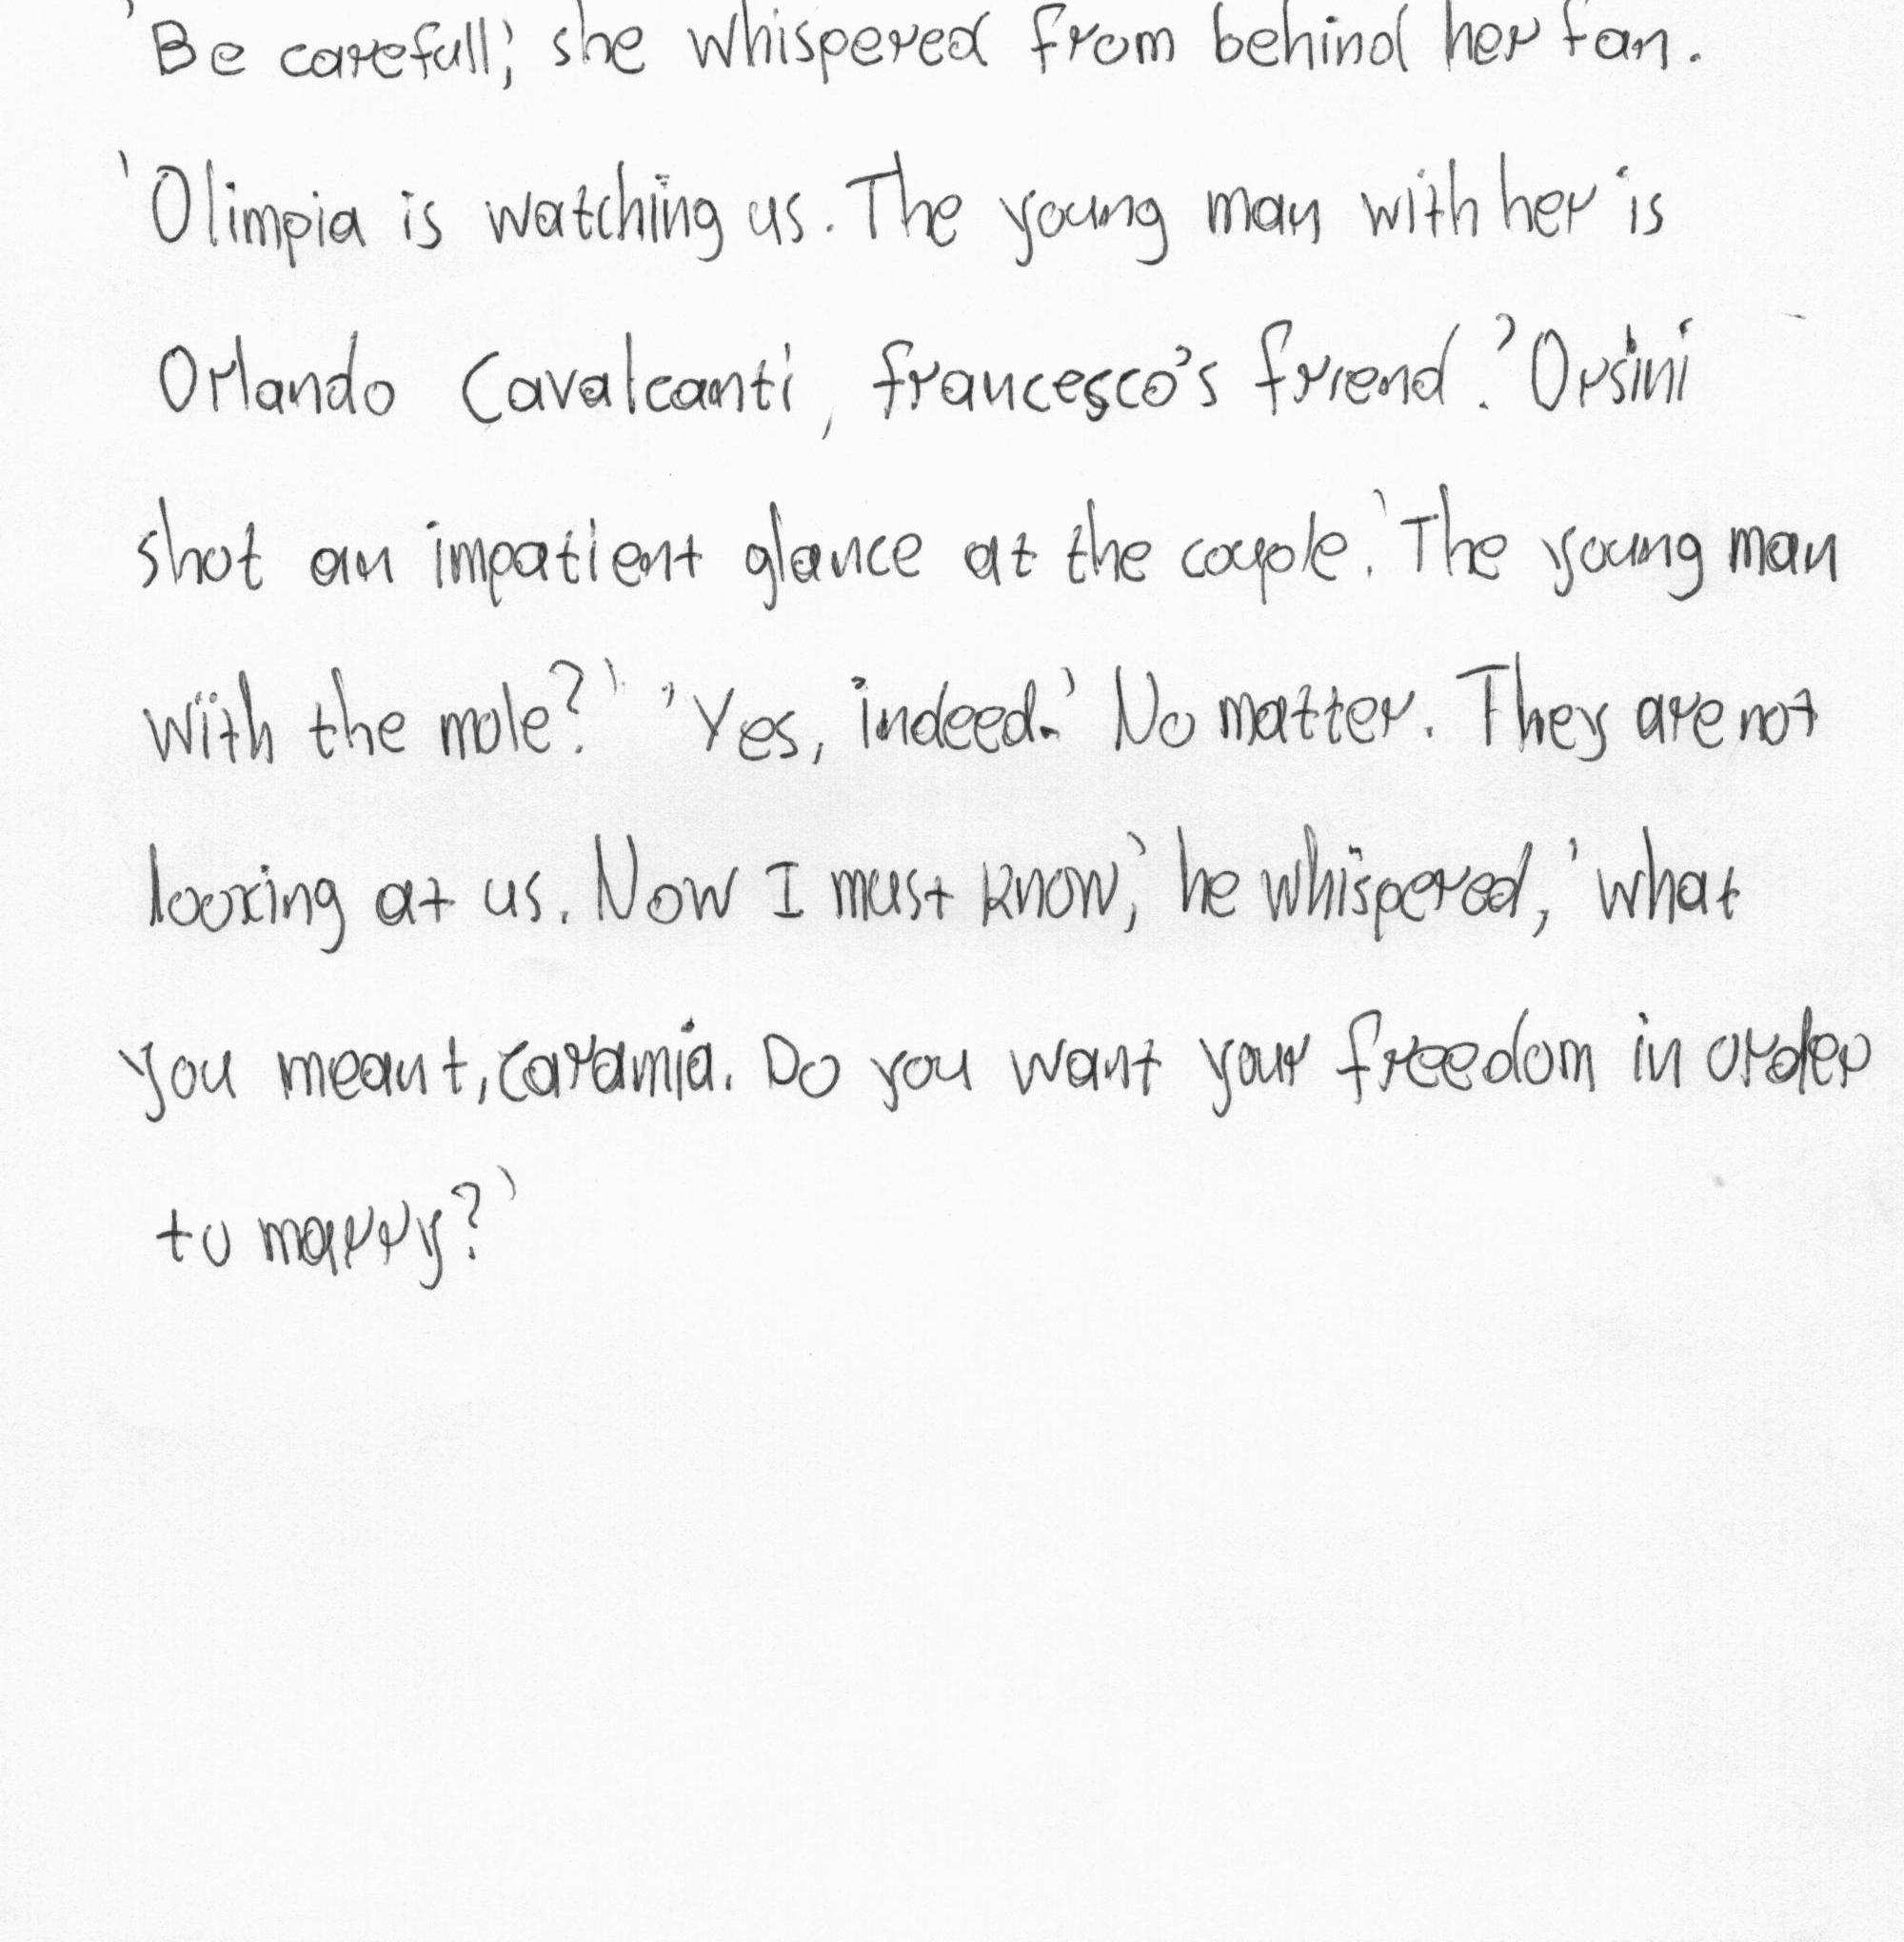 'Be carefull,' she whispered from behind her fan.
'Olimpia is watching us. The young man with her is
Orlando Cavalcanti, francesco's friend.' Orsini
shot an impatient glance at the couple. 'The young man
with the mole?' 'Yes, indeed.' No matter. They are not
looking at us. Now I must know,' he whispered, 'what
you meant, caramia. Do you want your freedom in order
to marry?'